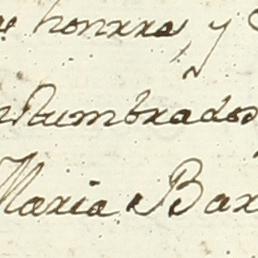 honrra, y
Numbrados
Maria Bar